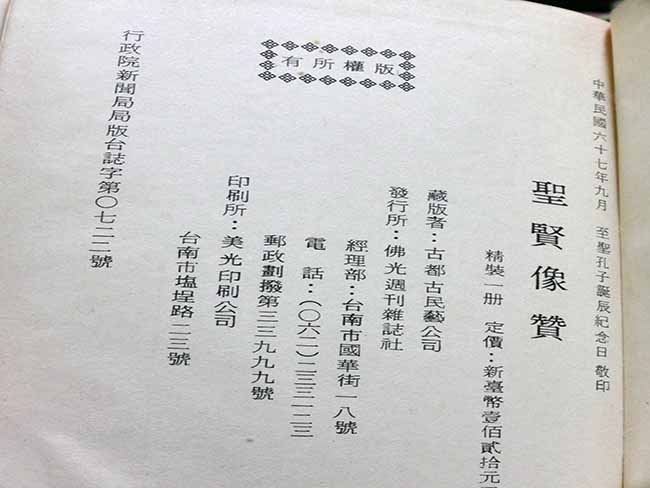 中華民國六十七年九月　至聖孔子誕辰紀念日　敬印
聖賢像贊
精裝一册　定價：新臺幣壹佰貳拾元
藏版者：古都古民藝公司
發行所：佛光週刊雜誌社
經理部：台南市國華街一八號
電話：（〇六二）二三三一二三
郵政劃撥第三三九九九號
印刷所：美光印刷公司
台南市塩埕路二三號
版權所有
行政院新聞局局版台誌字第〇七二二號